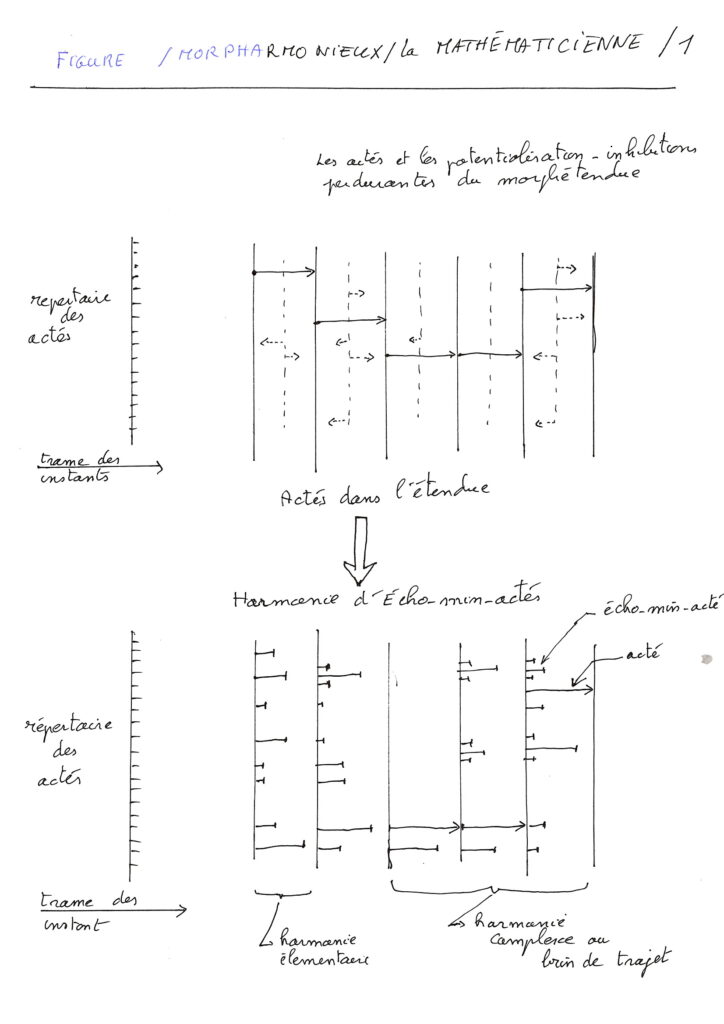 FIGURE /MORPHARMONIEUX/la MATHÉMATICIENNE /1
Les actés et les potentialisation-inhibitions
perdurantes du morphétendue
repertoire
des
actés
trame des
instants
Actés dans l'étendue
Harmonie d'Écho-min-actés
écho-min-acté
acté
répertoire
des
actés
trame des
instant
harmonie
élementaire
harmonie
complexe ou
brin de trajet